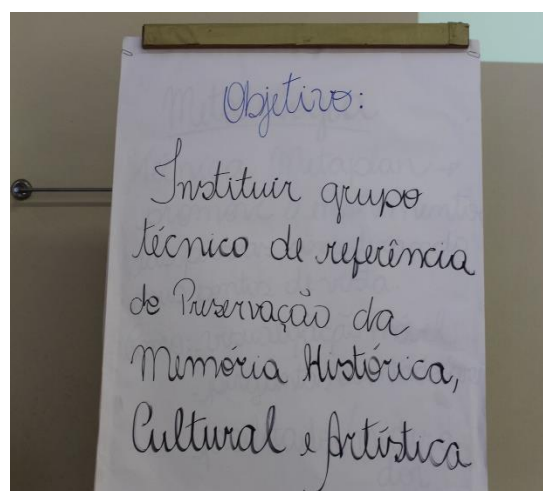 Objetivo:
Instituir grupo
técnico de referência
de Preservação da
Memória Histórica,
Cultural e Artística